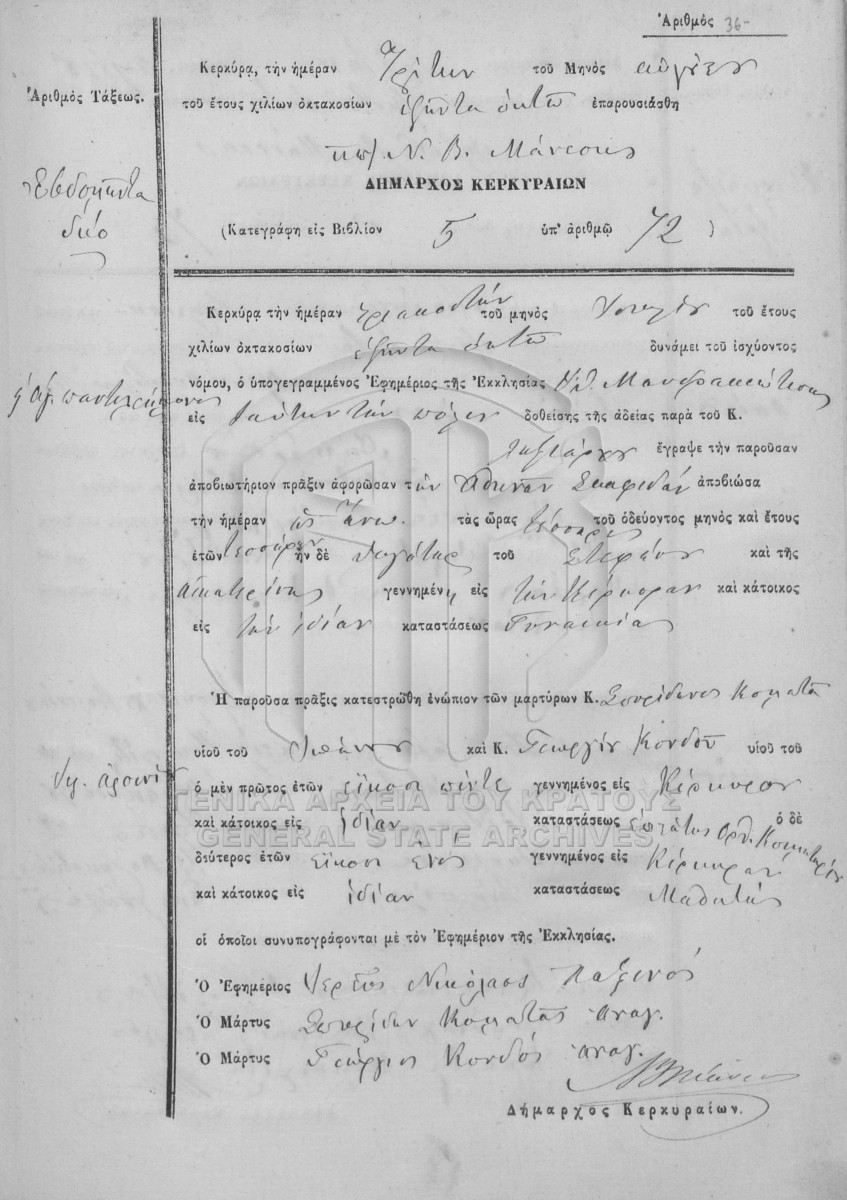 Ἀριθμός 36-
Κερκύρα, τὴν ἡμέραν Τρίτην τοῦ Μηνὸς
Ἀριθμὸς Τάξεως.
τοῦ ἔτους χιλίων ὀκτακοσίων ἑξῆντα ὀκτὼ ἐπαρουσιάσθη
Ν. Β. Μάνεσης
ΔΗΜΑΡΧΟΣ ΚΕΡΚΥΡΑΙΩΝ
Ἑβδομῆντα
δύο
(Κατεγράφη εἰς Βιβλίον 5 ὑπ' ἀριθμῷ 72 )
Κερκύρᾳ τὴν ἡμέραν τριακοστὴν τοῦ μηνὸς Ἰουλίου τοῦ ἔτους
χιλίων ὀκτακοσίων ἑξῆντα ὀκτὼ δυνάμει τοῦ ἰσχύοντος
νόμου, ὁ ὑπογεγραμμένος Ἐφημέριος τῆς Ἐκκλησίας
ἁγ. παντελεήμονος
εἰς ταύτην τὴν πόλιν δοθείσης τῆς ἀδείας παρὰ τοῦ Κ.
ἔγραψε τὴν παροῦσαν
ἀποβιωτήριον πρᾶξιν ἀφορῶσαν τὴν Ἀθηνᾶν Σκαφιδᾶ ἀποβιώσα
τὴν ἡμέραν ὡς ἄνω τὰς ὥρας τέσσαρες τοῦ ὁδεύοντος μηνὸς καὶ ἔτους
ἐτῶν τεσσάρων ἣν δὲ θυγάτηρ τοῦ Στεφάνου καὶ τῆς
Αἰκατερίνης γεννημένη εἰς τὴν Κέρκυραν καὶ κάτοικος
εἰς τὴν ἰδίαν καταστάσεως
Ἡ παροῦσα πρᾶξις κατεστρώθη ἐνώπιον τῶν μαρτύρων Κ. Σπυρίδωνος
υἱοῦ τοῦ Ἰωάννου καὶ Κ. Γεωργίου Κονδοῦ υἱοῦ τοῦ
ὁ μὲν πρῶτος ἐτῶν εἴκοσι πέντε γεννημένος εἰς Κέρκυραν
ΓΕΝΙΚΑ ΑΡΧΕΙΑ ΤΟΥ ΚΡΑΤΟΥΣ
καὶ κάτοικος εἰς ἰδίαν καταστάσεως ὁ δὲ
GENERAL STATE ARCHIVES
δεύτερος ἐτῶν εἴκοσι ἑνός γεννημένος εἰς Κέρκυραν
καὶ κάτοικος εἰς ἰδίαν καταστάσεως Μαθητής
οἱ ὁποῖοι συνυπογράφονται μὲ τὸν Ἐφημέριον τῆς Ἐκκλησίας.
Ὁ Ἐφημέριος Ἱερεὺς Νικόλαος Παξινός
Ὁ Μάρτυς Σπυρίδων
Ὁ Μάρτυς Γεώργιος Κονδός
Δήμαρχος Κερκυραίων.